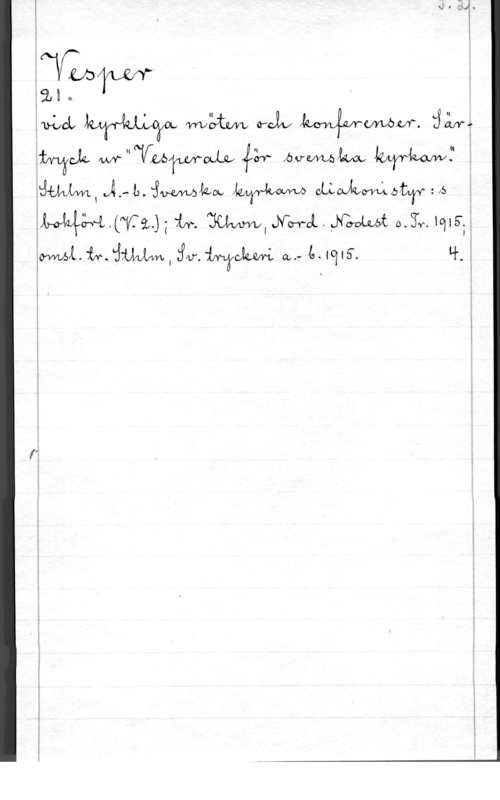 Vesper
21.
vid kyrkliga möten och konferenser. Sär-
tryck ur "Vesperale för svenska kyrkan."
Sthlm, A.-b. Svenska kyrkans diakonistyr:s
bokförl. (V. 2.); tr. Khvn, Nord. Nodest o. Fr. 1915;
omsl. tr. Sthlm, Sv. tryckeri a.-b. 1915. 4.